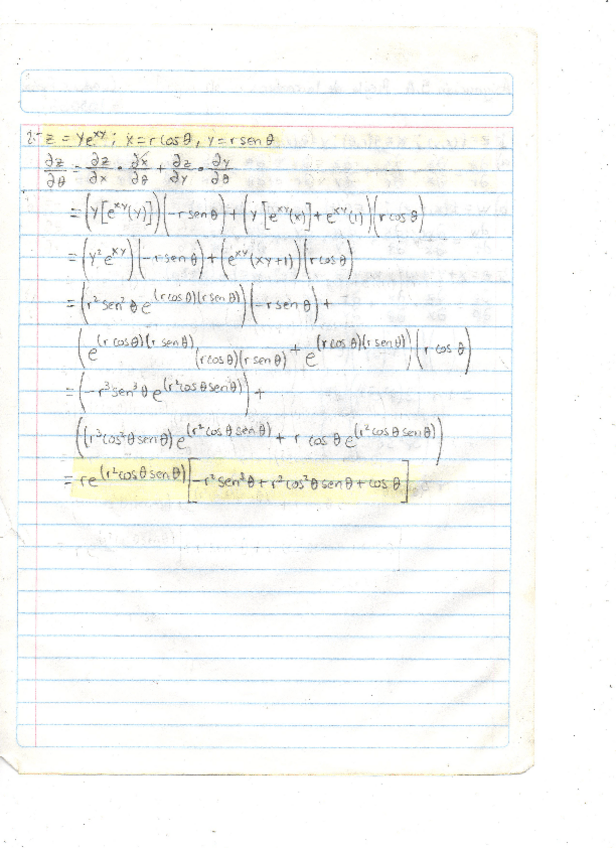 2.- z = ye^{xy} ; x = r cos θ, y = r sen θ
∂z/∂θ = ∂z/∂x · ∂x/∂θ + ∂z/∂y · ∂y/∂θ
= (y[e^{xy}(y)])(-r sen θ) + (y[e^{xy}(x)] + e^{xy}(1))(r cos θ)
= (y² e^{xy})(-r sen θ) + (e^{xy}(xy+1))(r cos θ)
= (r² sen² θ e^{(r cos θ)(r sen θ)})(-r sen θ) +
(e^{(r cos θ)(r sen θ)}(r cos θ)(r sen θ) + e^{(r cos θ)(r sen θ)})(r cos θ)
= (-r³ sen³ θ e^{(r² cos θ sen θ)}) +
((r³ cos² θ sen θ) e^{(r² cos θ sen θ)} + r cos θ e^{(r² cos θ sen θ)})
= re^{(r² cos θ sen θ)} [-r² sen³ θ + r² cos² θ sen θ + cos θ]